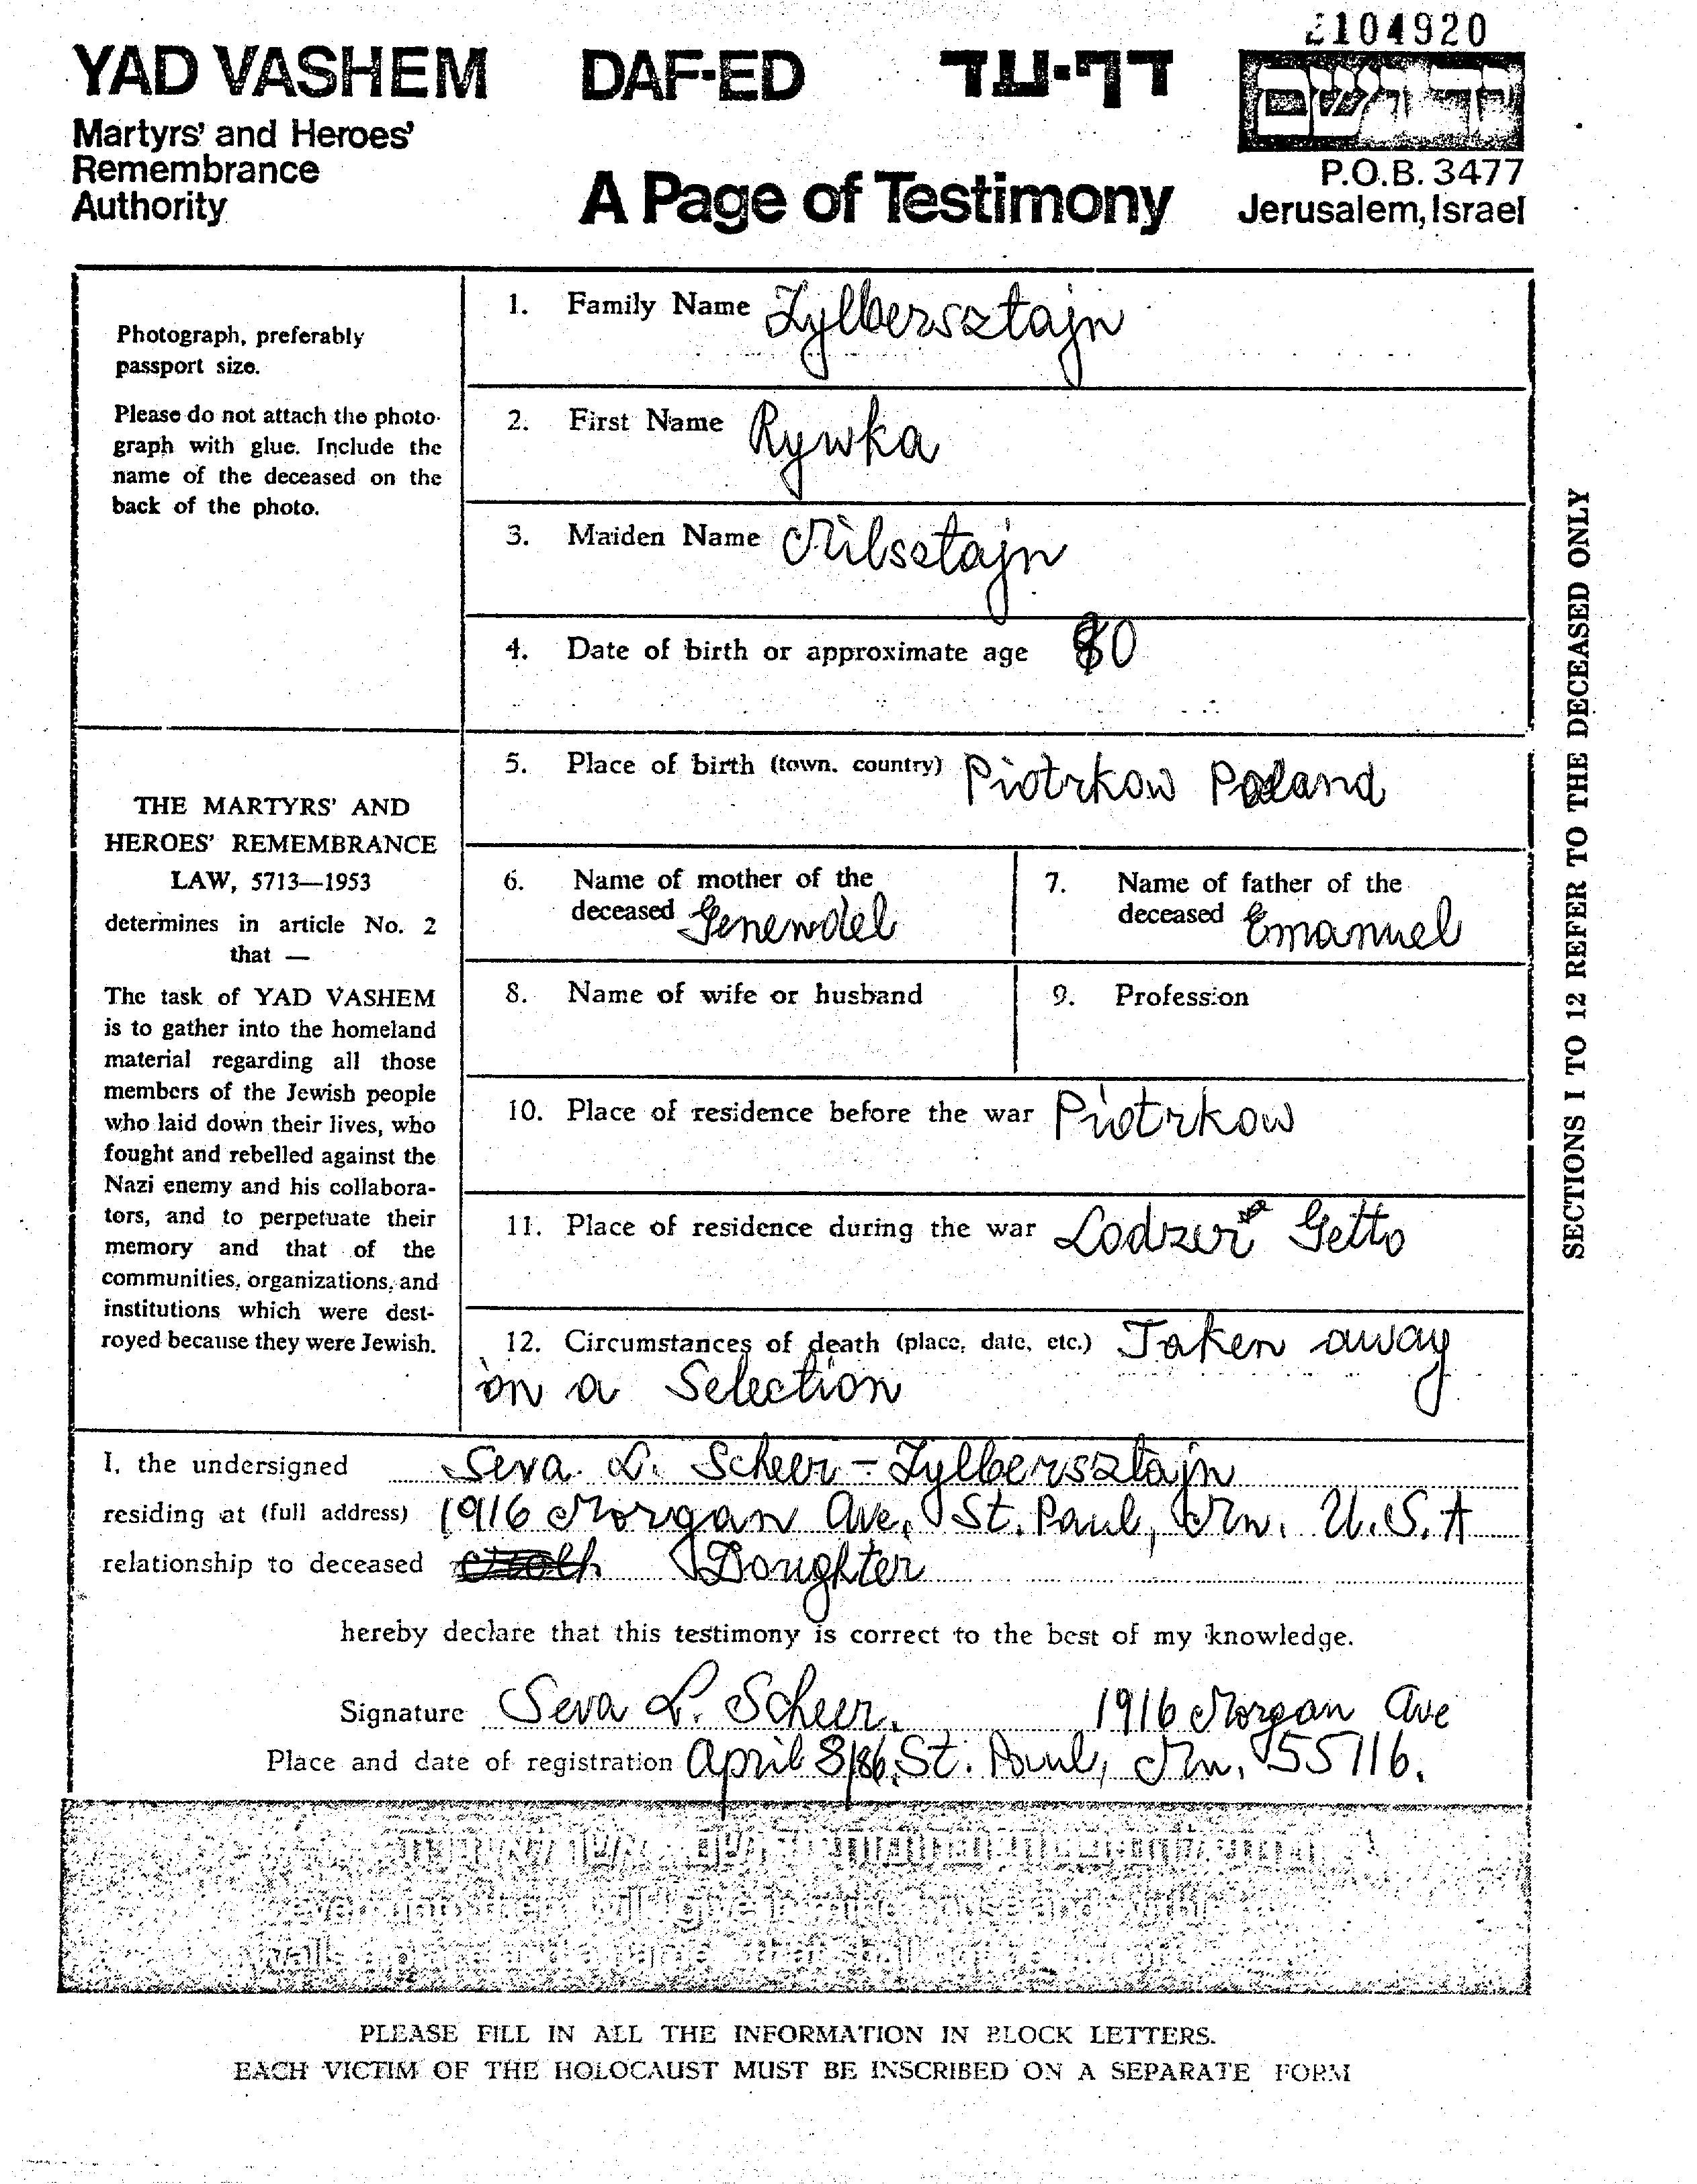 2104920
YAD VASHEM DAF-ED דף-עד
יד ושם
Martyrs' and Heroes'
Remembrance
Authority
A Page of Testimony
P.O.B. 3477
Jerusalem, Israel
Photograph, preferably
passport size.
Please do not attach the photo-
graph with glue. Include the
name of the deceased on the
back of the photo.
THE MARTYRS' AND
HEROES' REMEMBRANCE
LAW, 5713—1953
determines in article No. 2
that —
The task of YAD VASHEM
is to gather into the homeland
material regarding all those
members of the Jewish people
who laid down their lives, who
fought and rebelled against the
Nazi enemy and his collabora-
tors, and to perpetuate their
memory and that of the
communities, organizations, and
institutions which were dest-
royed because they were Jewish.
1. Family Name Zylbersztajn
2. First Name Rywka
3. Maiden Name Milsztajn
4. Date of birth or approximate age 80
5. Place of birth (town, country) Piotrkow Poland
6. Name of mother of the
deceased Genendel
7. Name of father of the
deceased Emanuel
8. Name of wife or husband
9. Profession
10. Place of residence before the war Piotrkow
11. Place of residence during the war Lodzer Getto
12. Circumstances of death (place, date, etc.) Taken away
on a Selection
SECTIONS 1 TO 12 REFER TO THE DECEASED ONLY
I, the undersigned Seva L. Scheer - Zylbersztajn
residing at (full address) 1916 Morgan Ave, St. Paul, Mn. U.S.A
relationship to deceased Doughter
hereby declare that this testimony is correct to the best of my knowledge.
Signature Seva L. Scheer. 1916 Morgan Ave
Place and date of registration April 8/86, St. Paul, Mn, 55116.
even unto them will I give in mine house and within my
walls a place and a name that shall not be cut off
PLEASE FILL IN ALL THE INFORMATION IN BLOCK LETTERS.
EACH VICTIM OF THE HOLOCAUST MUST BE INSCRIBED ON A SEPARATE FORM